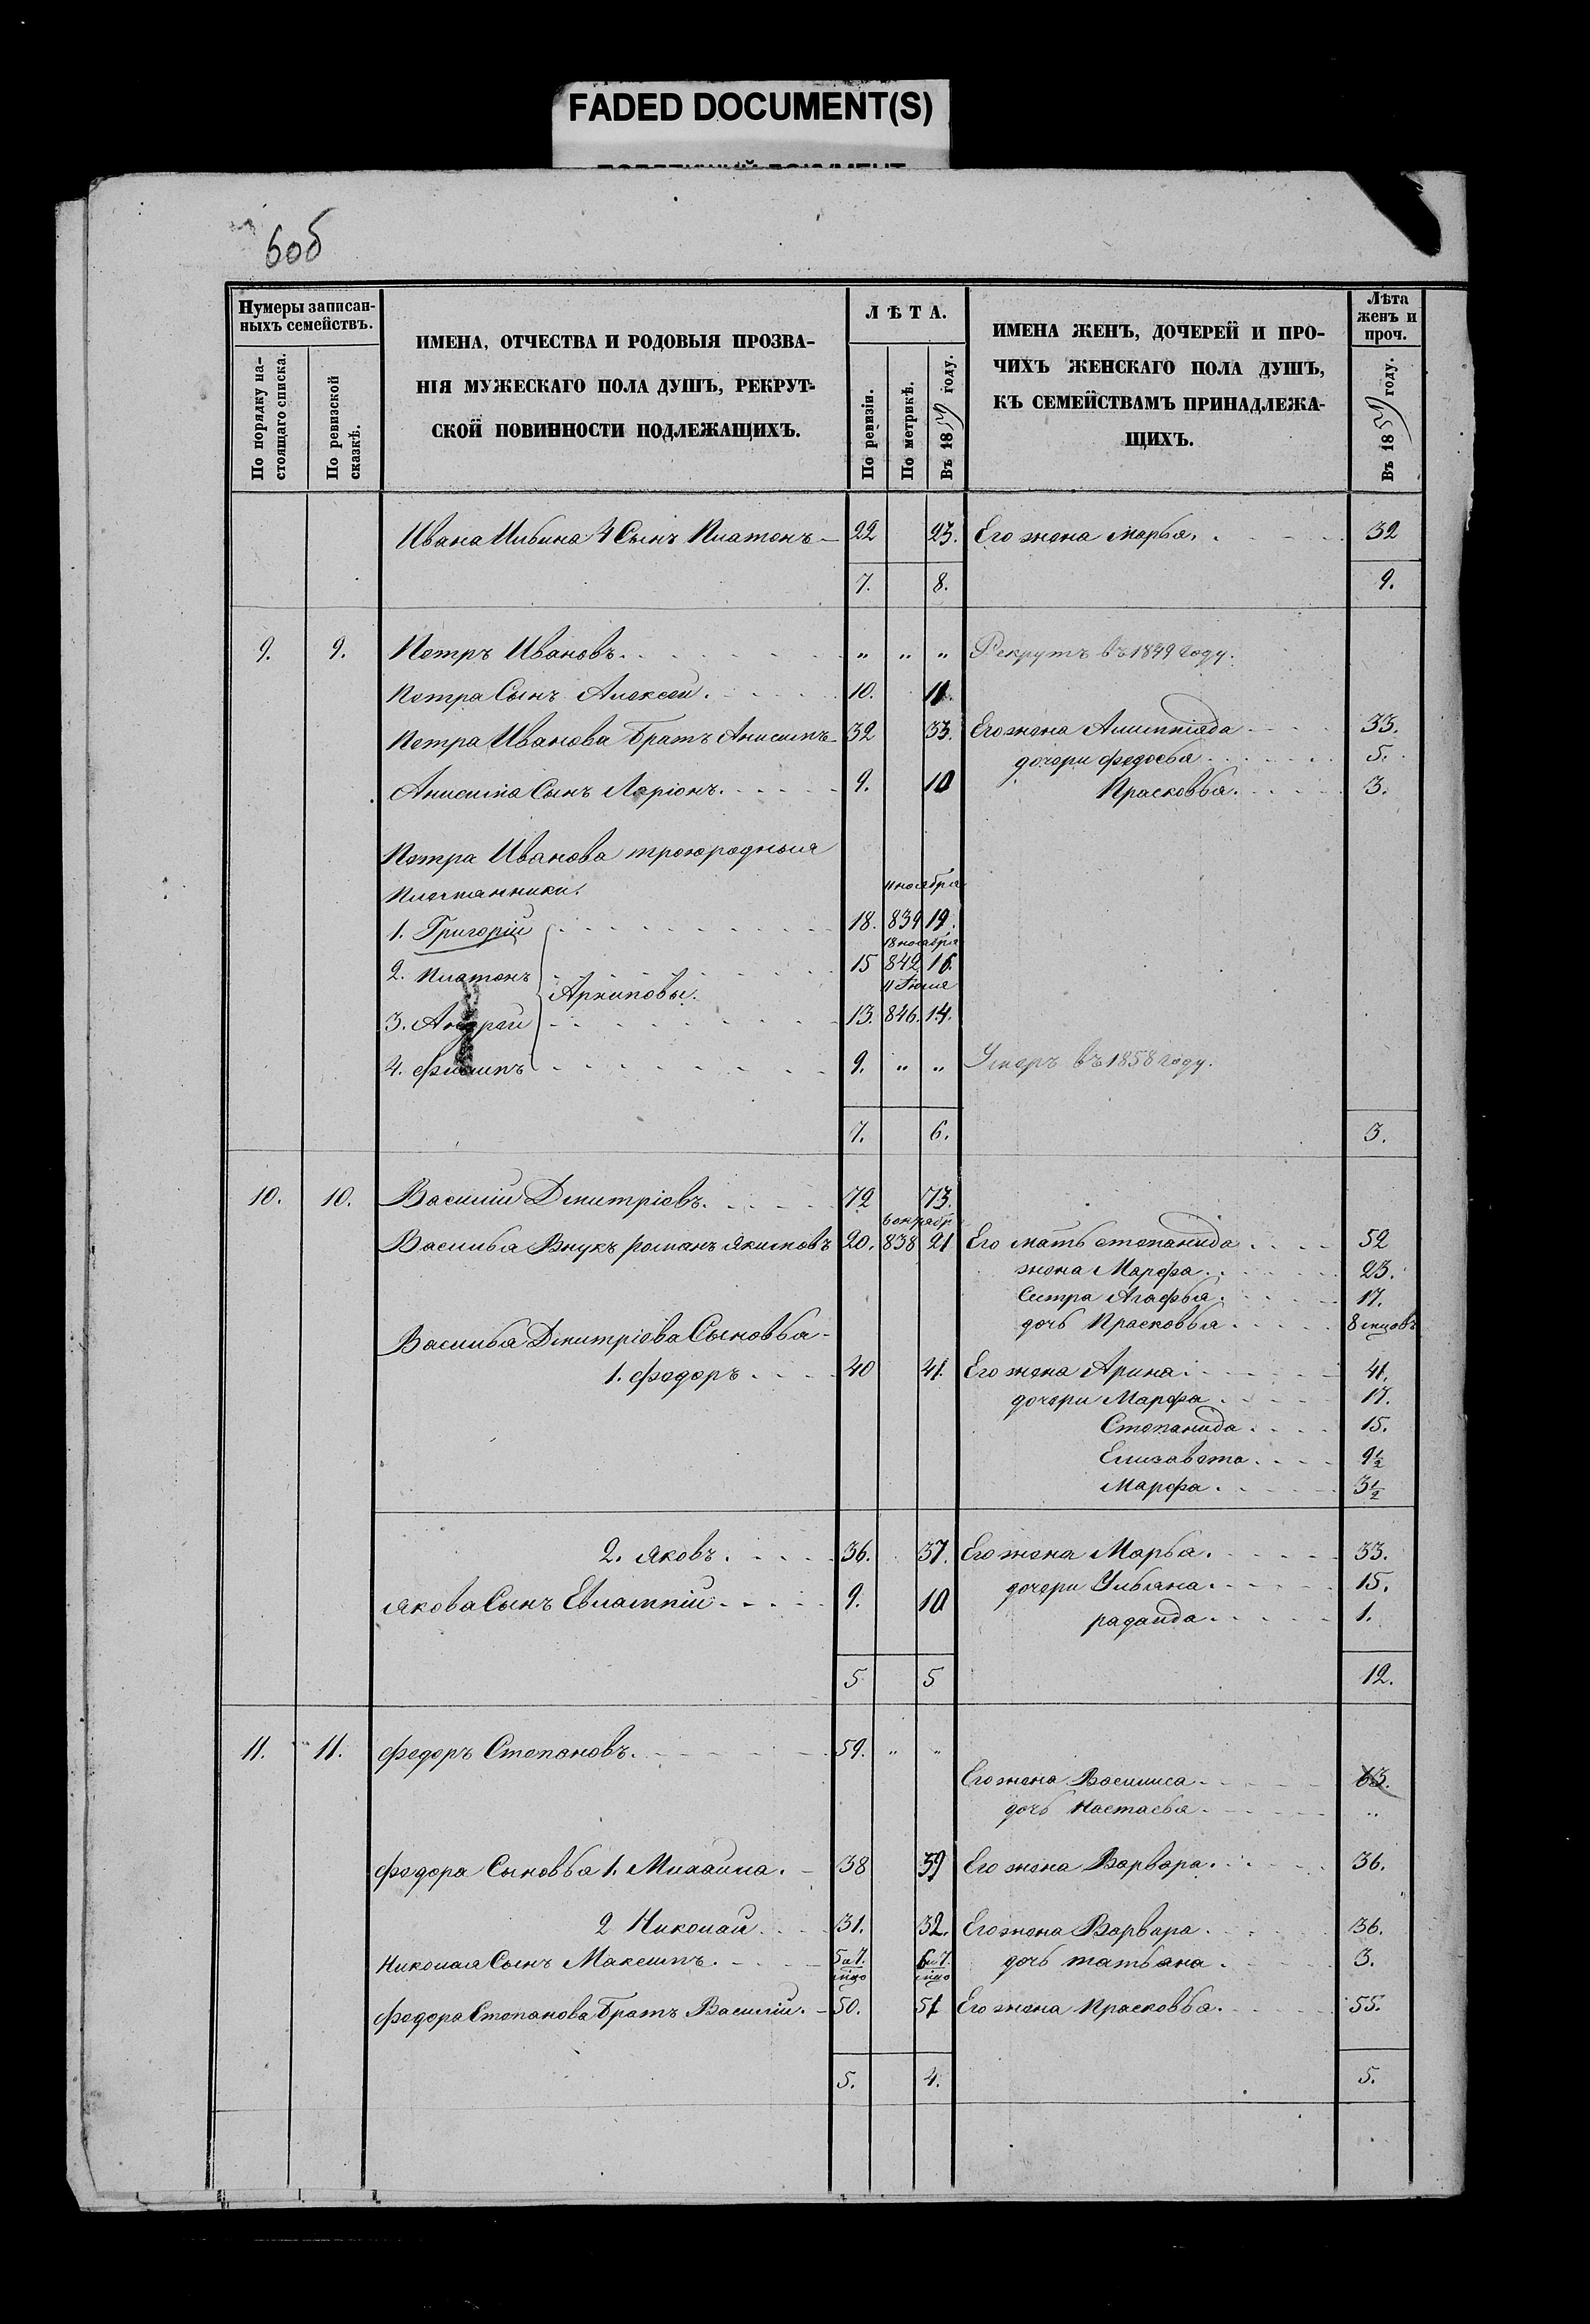 FADED DOCUMENT(S)
6об
Нумеры записан-
ныхъ семействъ.
По порядку на-
стоящаго списка.
По ревизской
сказкѣ.
ИМЕНА, ОТЧЕСТВА И РОДОВЫЯ ПРОЗВА-
НІЯ МУЖЕСКАГО ПОЛА ДУШЪ, РЕКРУТ-
СКОЙ ПОВИННОСТИ ПОДЛЕЖАЩИХЪ.
ЛѢТА.
По ревизіи.
По метрикѣ.
Въ 1859 году.
ИМЕНА ЖЕНЪ, ДОЧЕРЕЙ И ПРО-
ЧИХЪ ЖЕНСКАГО ПОЛА ДУШЪ,
КЪ СЕМЕЙСТВАМЪ ПРИНАДЛЕЖА-
ЩИХЪ.
Лѣта
женъ и
проч.
Въ 1859 году.
Ивана 4 Сынъ Платонъ 22 23. Его жена Марья 32
7. 8. 9.
9. 9. Петръ Ивановъ. " " " Рекрутъ въ 1849 году.
Петра Сынъ Алексей. 10. 11.
Петра Иванова Братъ Анисимъ 32 33. Его жена 33.
дочери Федосья 5.
Анисима Сынъ Ларіонъ. 9. 10 Прасковья. 3.
Петра Иванова троюродныя
племянники.
11 ноября
1. Григорій 18. 839 19.
18 ноября
2. Платонъ 15 842 16.
Архиповы.
11 Іюля
3. Андрей 13. 846. 14.
4. Филипъ 9. " " Умеръ въ 1858 году.
7. 6. 3.
10. 10. Василій Дмитріевъ. 72 73.
6 октябр
Василья Внукъ романъ якимовъ 20. 838 21 Его мать степанида 52
жена Марфа. 23.
Сестра Агафья. 17.
дочь Прасковья 8 мцовъ
Василья Дмитріева Сыновья
1. Федоръ 40 41. Его жена Арина 41.
дочери Марфа 17.
Степанида 15.
Елизавета 9½
Марфа. 3½
2. яковъ. 36. 37. Его жена Марья. 33.
дочери Ульяна. 15.
якова Сынъ Евлампій 9. 10
раданда 1.
5 5 12.
11. 11. Федоръ Степановъ. 59. " "
Его жена Василиса 63.
дочь Настасья "
Федора Сыновья 1. Михаила. 38 39 Его жена Варвара. 36.
2 Николай 31. 32. Его жена Варвара 36.
Николая Сынъ Максимъ. 5 и 7. 6 и 7. дочь татьяна 3.
Федора Степанова Братъ Василій. 50. 51 Его жена Прасковья. 55.
5. 4. 5.